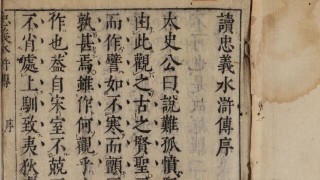 讀忠義水滸傳序
太史公曰說難孤憤
由此觀之古之賢聖
而作譬如不寒而顫
孰甚焉雖作何觀乎
作也蓋自宋室不兢
不肖處上馴致夷狄
忠義水滸傳 序